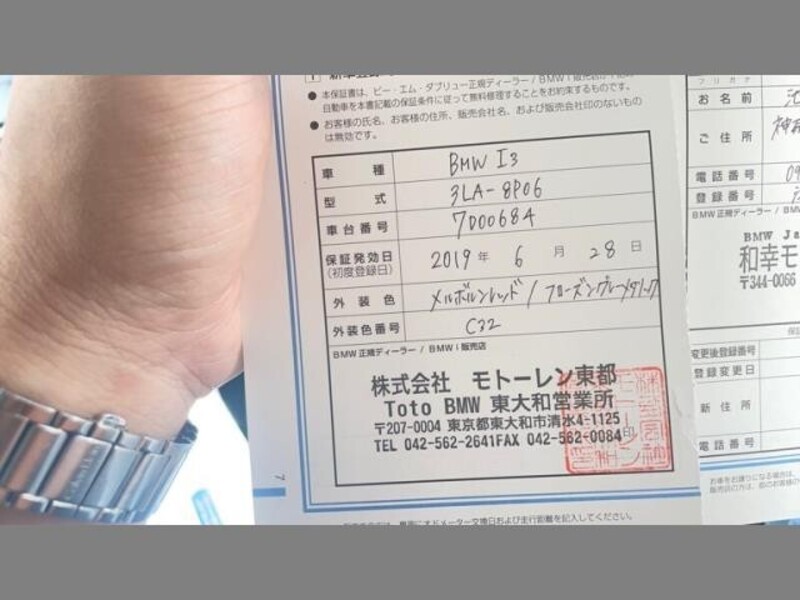 ● 本保証書は、ビー・エム・ダブリュー正規ディーラー / BMW i 販売店が
自動車を本書記載の保証条件に従って無料修理することをお約束するものです。
● お客様の氏名、お客様の住所、販売会社名、および販売会社印のないもの
は無効です。
車種 BMW I3
型式 3LA-8P06
車台番号 7D00684
保証発効日 2019 年 6 月 28 日
(初度登録日)
外装色 メルボルンレッド / フローズングレーメタリック
外装色番号 C32
BMW正規ディーラー / BMW i 販売店
株式会社 モトーレン東都
Toto BMW 東大和営業所
〒207-0004 東京都東大和市清水4-1125
TEL 042-562-2641FAX 042-562-0084
印
7
フリガナ
お名前
ご住所
電話番号 09
登録番号
BMW正規ディーラー / BM
BMW Ja
和幸モ
〒344-0066
変更後登録番号
登録変更日
新住所
電話番号